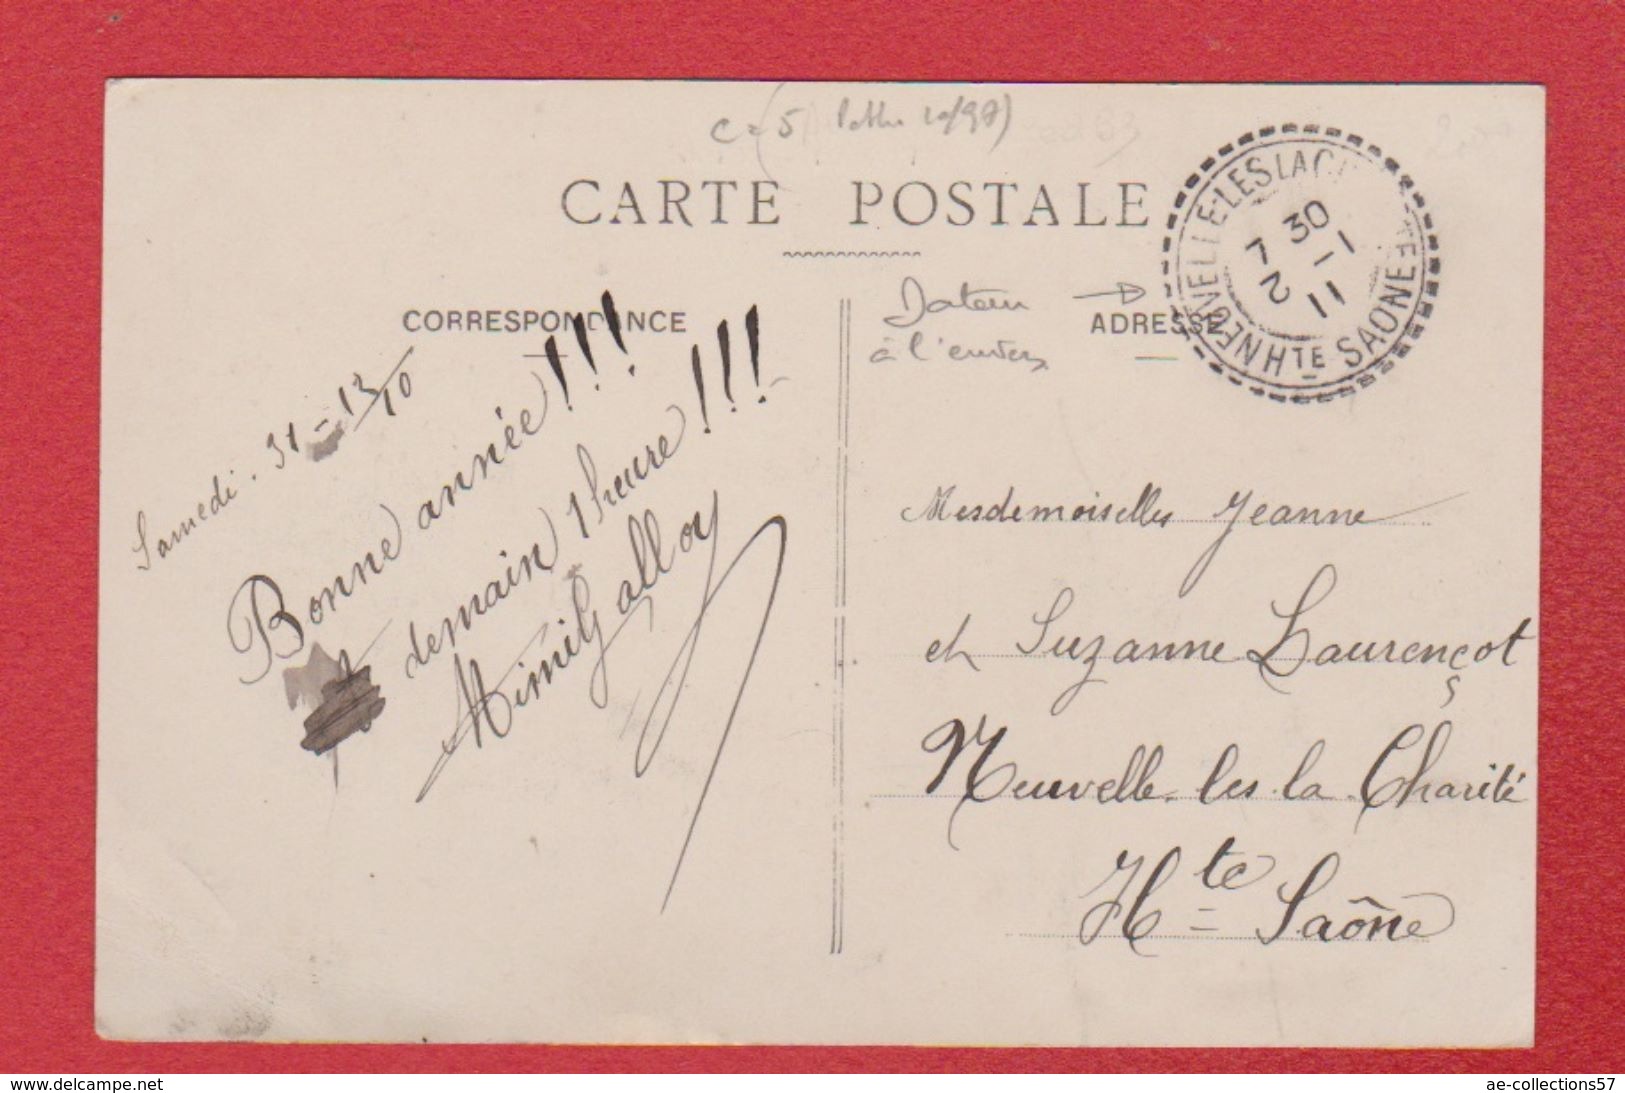 CARTE POSTALE
NEUVELLE-LES LA C TE
30
7 - 1
2 11
HTE SAONE
Dateur
à l'envers
CORRESPONDANCE
ADRESSE
Samedi. 31 - 13/10
Bonne année!!!
demain 1 heure!!!
Mimily alloy
Mesdemoiselles Jeanne
et Suzanne Laurençot
Neuvelle les la Charité
Hte Saône
www.delcampe.net
ae-collections57